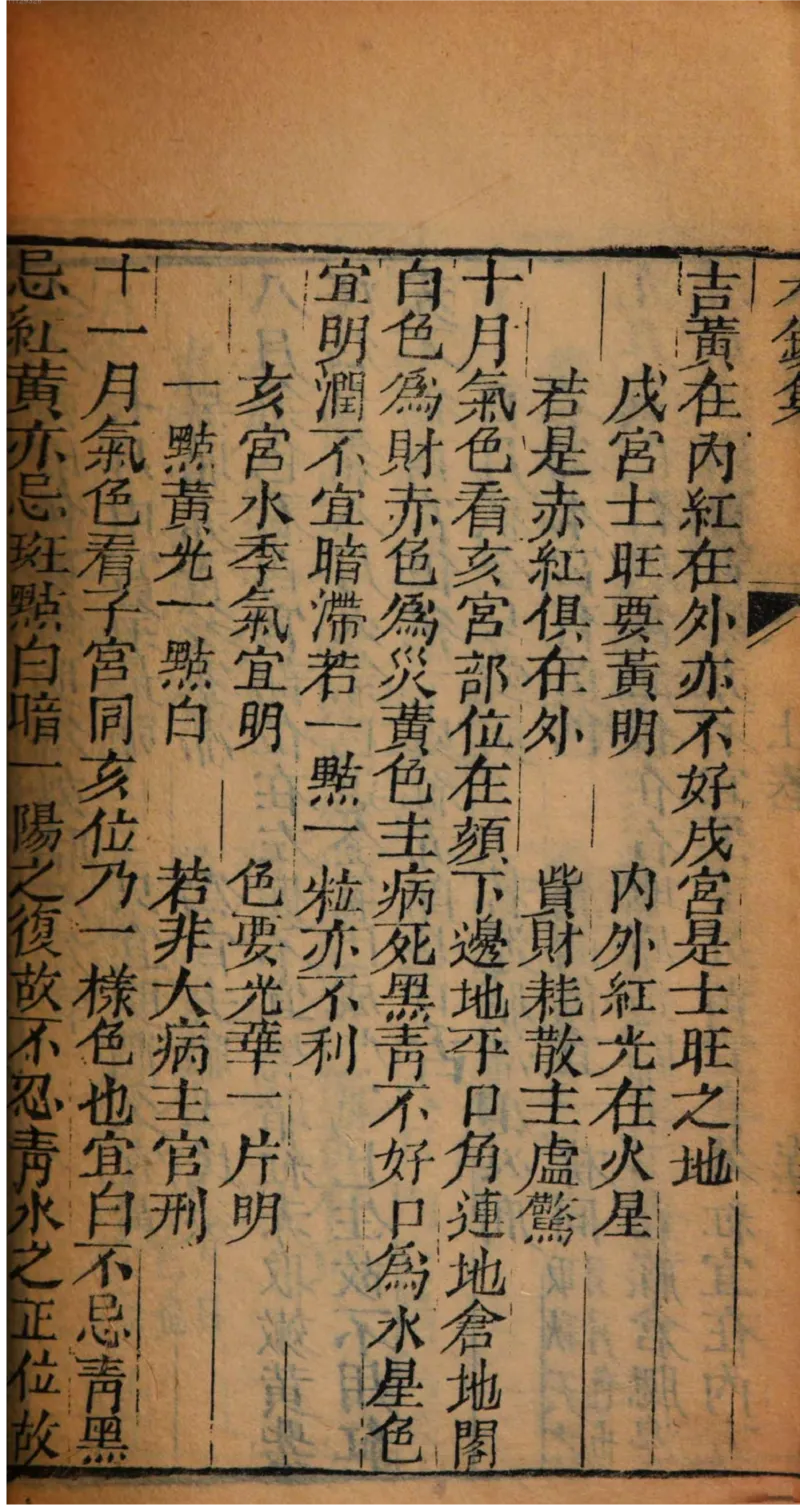 吉黃在內紅在外亦不好戌宮是土旺之地
戌宮土旺要黃明　內外紅光在火星
若是赤紅俱在外　貲財耗散主虛驚
十月氣色看亥宮部位在頦下邊地平口角連地倉地閣
白色爲財赤色爲災黃色主病死黑靑不好口爲水星色
宜明潤不宜暗滯若一點一粒亦不利
亥宮水季氣宜明　色要光華一片明
一點黃光一點白　若非大病主官刑
十一月氣色看子宮同亥位乃一樣色也宜白不忌靑黑
忌紅黃亦忌斑點白暗一陽之復故不忍靑水之正位故